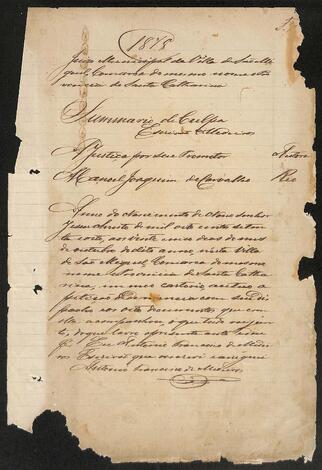 1878
Juizo Municipal da Villa de São Mi
guel, Comarca do mesmo nome da Pro
vincia de Santa Catharina
Summario de Culpa
Escrivão Medeiros
A Justiça por seu Promotor Autora
Manoel Joaquim de Carvalho Reo
Anno do Nascimento de Nosso Senhor
Jesus Christo de mil oito centos seten
ta e oito, aos vinte e dias do mes
de outubro do dito anno, nesta Villa
de São Miguel, Comarca do mesmo
nome, Provincia de Santa Catha
rina, em meu cartorio autuo a
petição Denuncia com seu des
pacho aos oito documentos que com
ella acompanhão, e que tudo
do que lavro o presente
Eu Antonio Francisco de Medei
ros Escrivão que escrevi e assignei
Antonio Francisco de Medeiros